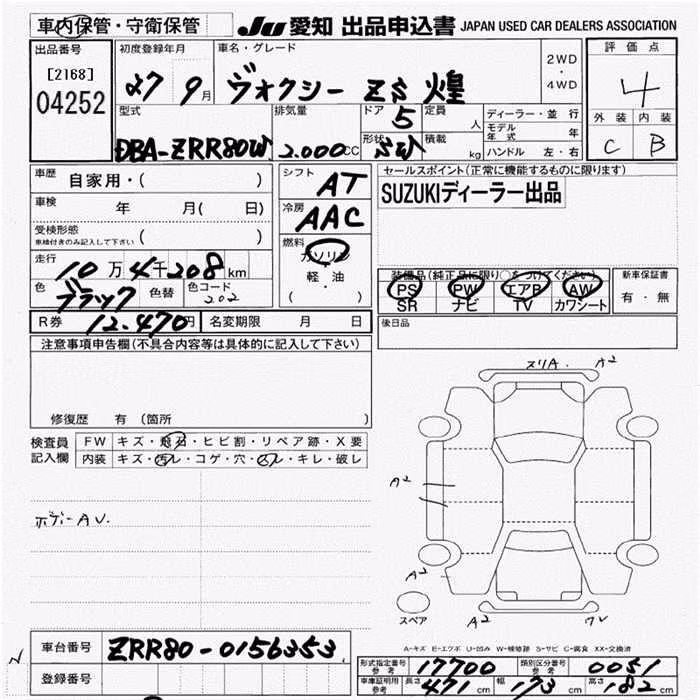 車内保管・守衛保管 JU 愛知 出品申込書 JAPAN USED CAR DEALERS ASSOCIATION
出品番号 [2168] 04252
初度登録年月 27 9月
車名・グレード ヴォクシー ZS 煌
2WD・4WD
評価点 4
外装 内装
C B
型式 DBA-ZRR80W
排気量 2.000CC
ドア 5
形状 SW
定員 人
積載 kg
ディーラー・並行
モデル年式 年
ハンドル 左・右
車歴 自家用・( )
車検 年 月( 日)
受検形態 車検付きのみ記入して下さい ( )
走行 10万4千208km
色 ブラック 色替 色コード 202
R券 12.470円 名変期限 月 日
シフト AT
冷房 AAC
燃料 ガソリン・軽・油 ( )
セールスポイント(正常に機能するものに限ります)
SUZUKIディーラー出品
装備品(純正品に限り○をつけてください)
PS PW エアB AW
SR ナビ TV カワシート
新車保証書
有・無
後日品
注意事項申告欄(不具合内容等は具体的に記入して下さい)
修復歴 有(箇所 )
検査員記入欄
FW キズ・飛石・ヒビ割・リペア跡・X要
内装 キズ・汚レ・コゲ・穴・スレ・キレ・破レ
ボデーAU.
スリA. A2
A2
A2
スペア A2 WU
A-キズ E-エクボ U-凹み W-補修跡 S-サビ C-腐食 XX-交換済
車台番号 ZRR80-0156353
登録番号
形式指定番号参考 17700 類別区分番号参考 0051
車庫証明用参考 長さ 471cm 幅 173cm 高さ 182cm